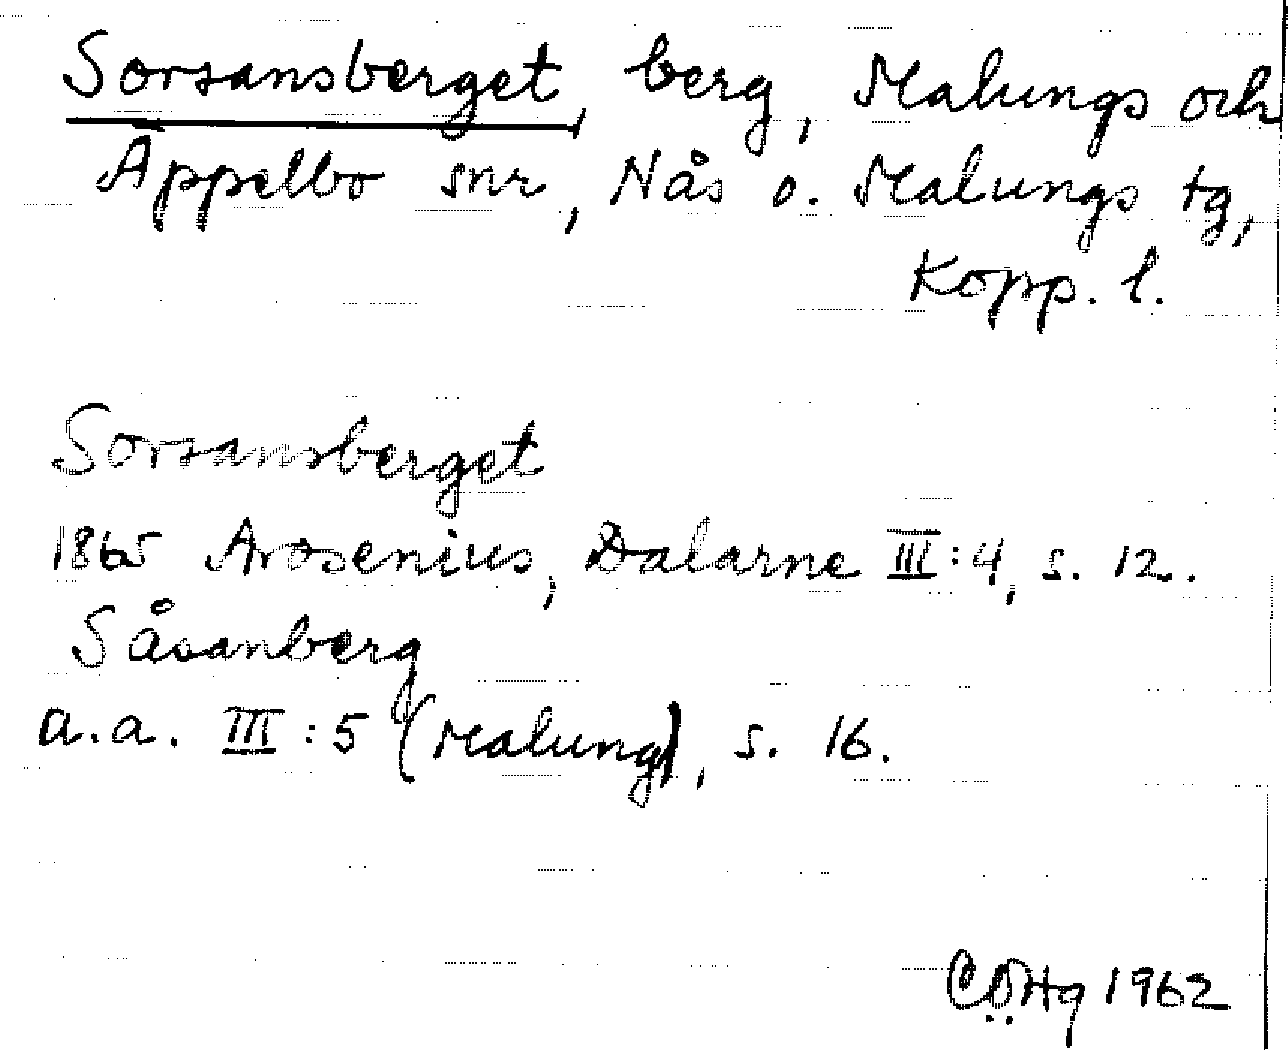 Sorsansberget, berg, Malungs och
Äppelbo snr, Nås o. Malungs tg,
Kopp. l.
Sorsansberget
1865 Arosenius, Dalarne III:4, s. 12.
Såsanberg
a.a. III:5 (Malung), s. 16.
CÖHg 1962